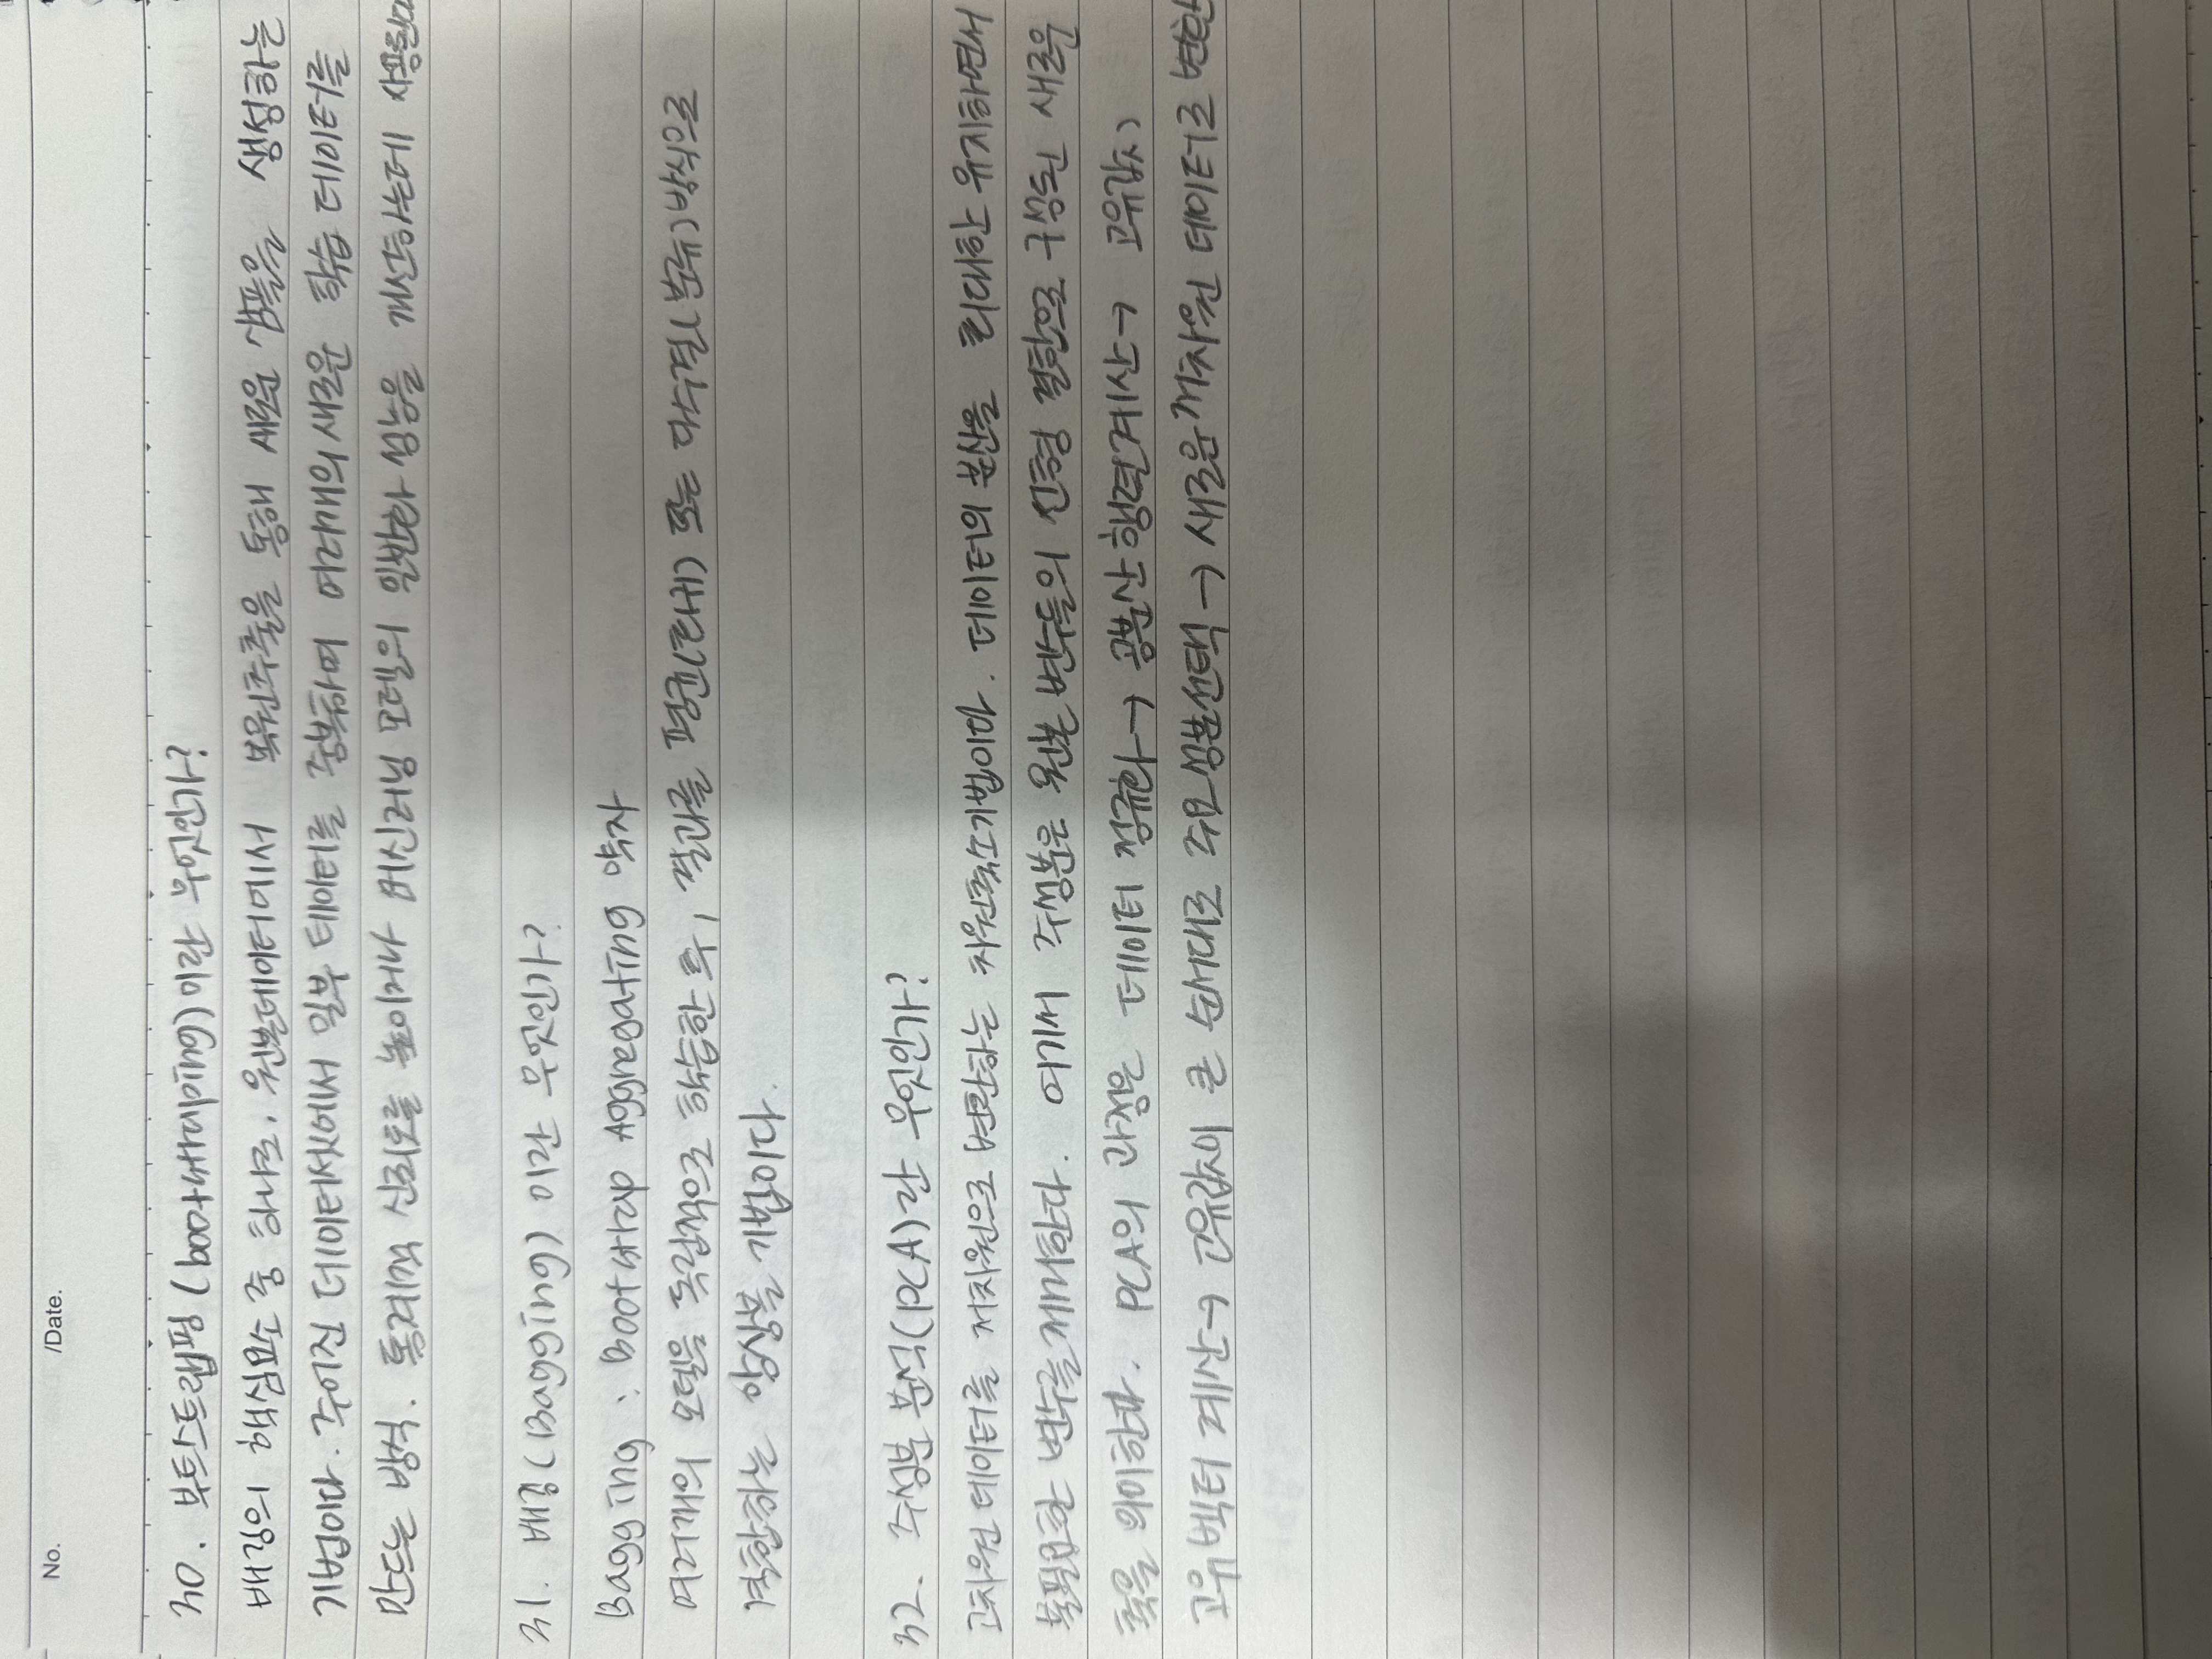 No. /Date.
30. 부트스트랩핑 (bootstraping)이란 무엇인가?
배깅의 핵심요소 중 하나로, 원본데이터에서 복원추출을 통해 새로운 샘플을 생성하는
기법이다. 주어진 데이터셋에서 일부 데이터를 중복하며 여러개의 새로운 학습 데이터를
만드는 방식. 통계적 신뢰도를 높이거나 머신러닝 모델의 일반화 성능을 개선하는데 사용된다
31. 배깅(Bagging) 이란 무엇인가?
Bagging : Bootstrap Aggregating 약자
여러개의 모델을 독립적으로 학습한 후, 결과를 평균(회귀) 또는 다수결(분류)방식으로
결합하는 앙상블 기법이다.
32. 주성분 분석(PCA)란 무엇인가?
고차원 데이터를 저차원으로 변환하는 차원축소기법이다. 데이터의 분산을 최대한 유지하면서
불필요한 변수를 제거한다. 여기서 주성분은 원본 변수들의 선형 결합으로 구성된 새로운
축을 의미한다. PCA의 과정은 데이터 정규화→ 공분산 행렬계산→ 고유값,
고유벡터 계산→ 고유값이 큰 순서대로 주요성분선택 → 새로운 저차원 데이터로 변환